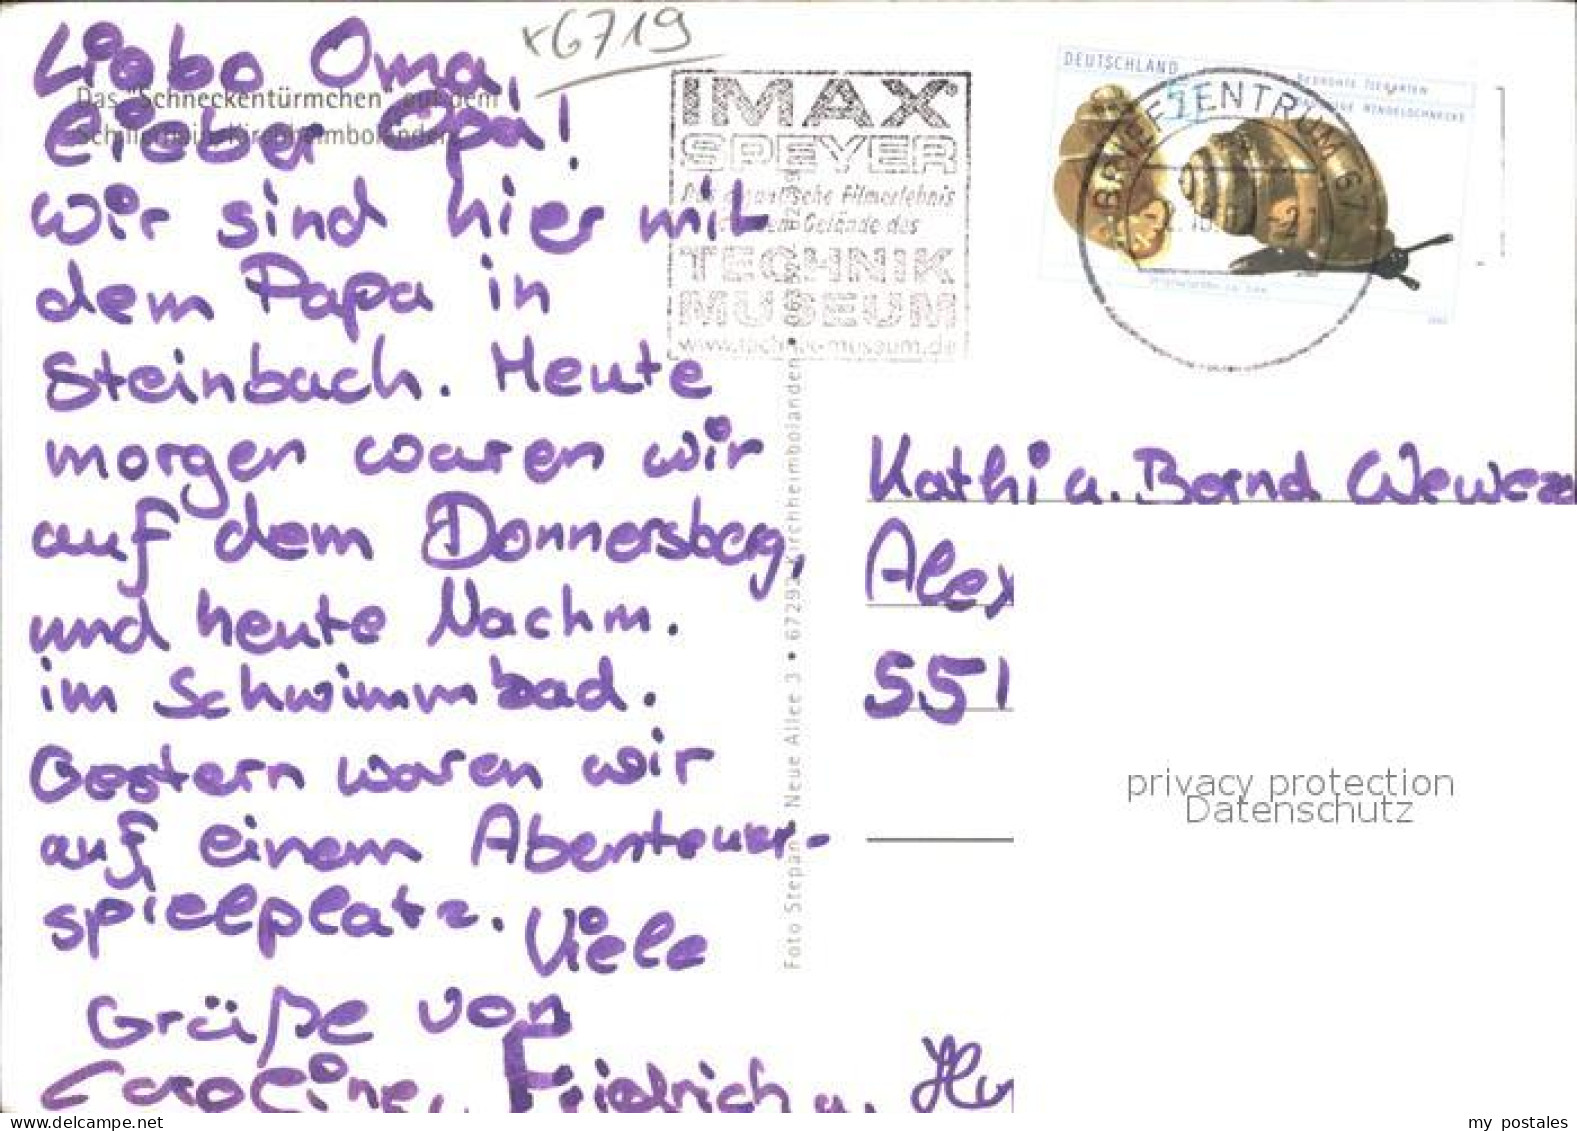 x6719
Liebe Oma,
Das "Schneckentürmchen" auf dem
lieber Opa!
Wir sind hier mit
dem Papa in
Steinbach. Heute
morgen waren wir
auf dem Donnersberg,
und heute Nachm.
im Schwimmbad.
Gestern waren wir
auf einem Abenteuer-
spielplatz. Viele
Grüße von
Caroline, Friedrich u.
IMAX
SPEYER
Filmerlebnis
Gelände des
TECHNIK
MUSEUM
www.technik-museum.de
Foto Stepan • Neue Allee 3 • 67292 Kirchheimbolanden •
DEUTSCHLAND
BEDROHTE TIERARTEN
WINDELSCHNECKE
BRIEFZENTRUM 67
Kathi u. Bernd
Alex
551
privacy protection
Datenschutz
delcampe.net
my_postales